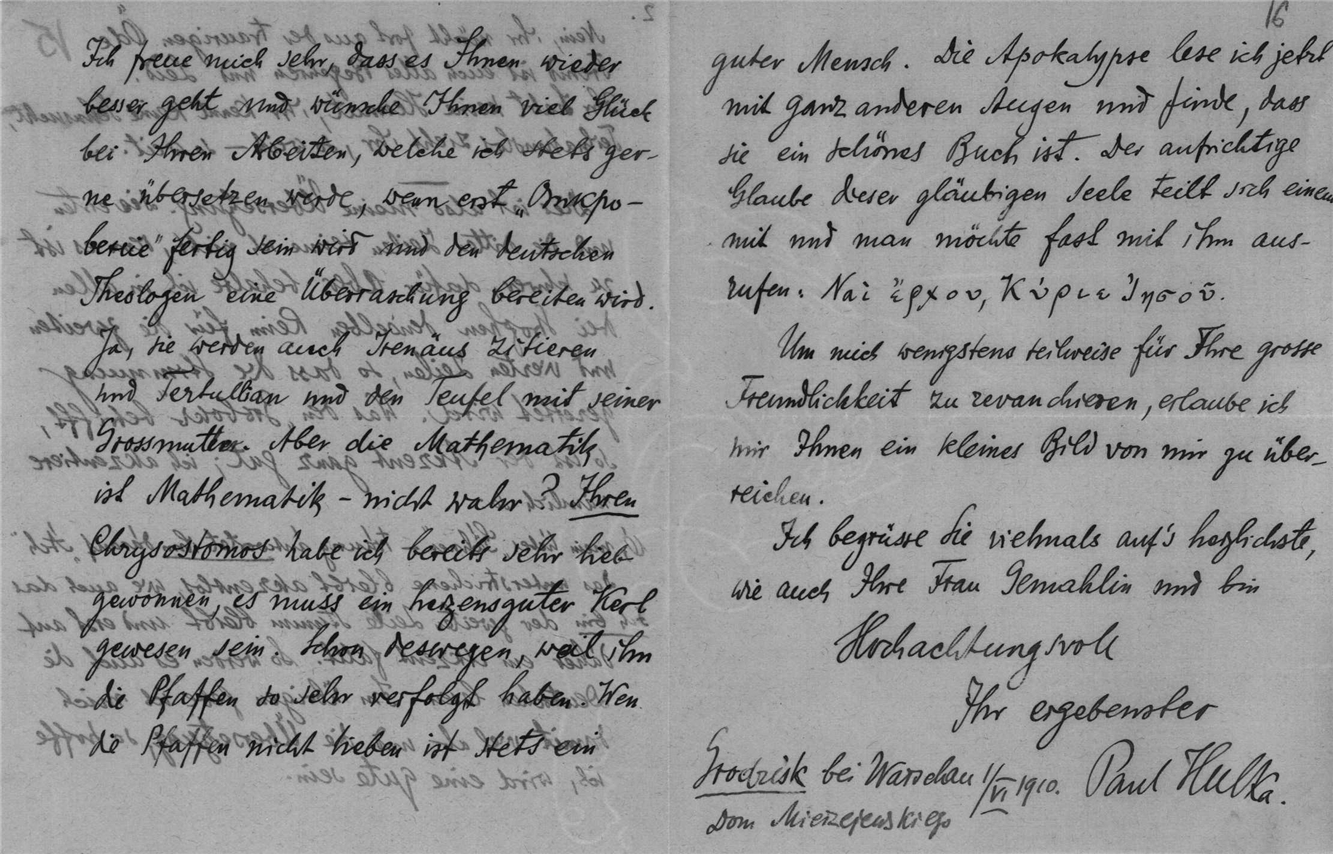 2.
Ich freue mich sehr, dass es Ihnen wieder
besser geht und wünsche Ihnen viel Glück
bei Ihren Arbeiten, welche ich stets ger-
ne übersetzen werde, wenn erst „Otkpo-
benie" fertig sein wird und den deutschen
Theologen eine Überraschung bereiten wird.
Ja, sie werden auch Irenäus zitieren
und Tertullian und den Teufel mit seiner
Grossmutter. Aber die Mathematik
ist Mathematik – nicht wahr? Ihren
Chrysostomos habe ich bereits sehr lieb
gewonnen, es muss ein herzensguter Kerl
gewesen sein. Schon deswegen, weil ihn
die Pfaffen so sehr verfolgt haben. Wen
die Pfaffen nicht lieben ist stets ein
16
guter Mensch. Die Apokalypse lese ich jetzt
mit ganz anderen Augen und finde, dass
sie ein schönes Buch ist. Der aufrichtige
Glaube dieser gläubigen Seele teilt sich einem
mit und man möchte fast mit ihm aus-
rufen: Ναὶ ἔρχου, Κύριε Ἰησοῦ.
Um mich wenigstens teilweise für Ihre grosse
Freundlichkeit zu revanchieren, erlaube ich
mir Ihnen ein kleines Bild von mir zu über-
reichen.
Ich begrüsse Sie vielmals auf's herzlichste,
wie auch Ihre Frau Gemahlin und bin
Hochachtungsvoll
Ihr ergebenster
Grodzisk bei Warschau 1/VI 1910. Paul Hulka.
Dom